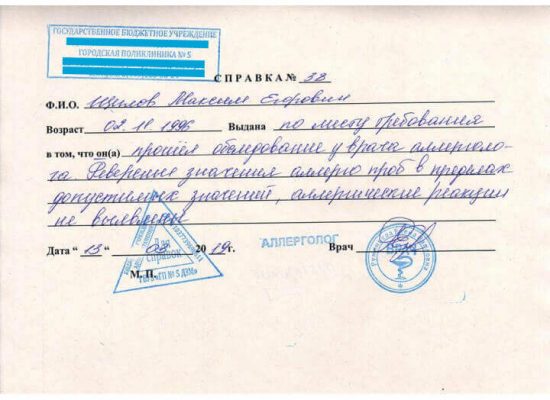 ГОСУДАРСТВЕННОЕ БЮДЖЕТНОЕ УЧРЕЖДЕНИЕ
ГОРОДСКАЯ ПОЛИКЛИНИКА № 5
СПРАВКА № 38
Ф.И.О. Шилов Максим Егорович
Возраст 02.11 1996 Выдана по месту требования
в том, что он(а) прошёл обследование у врача аллерголо-
га. Реверсные значения аллерго проб в пределах
допустимых значений, аллергические реакции
не выявлены
Дата " 13 " 03 2019г. АЛЛЕРГОЛОГ Врач
Для справок
М. П.
ГБУЗ «ГП № 5 ДЗМ»
Врач